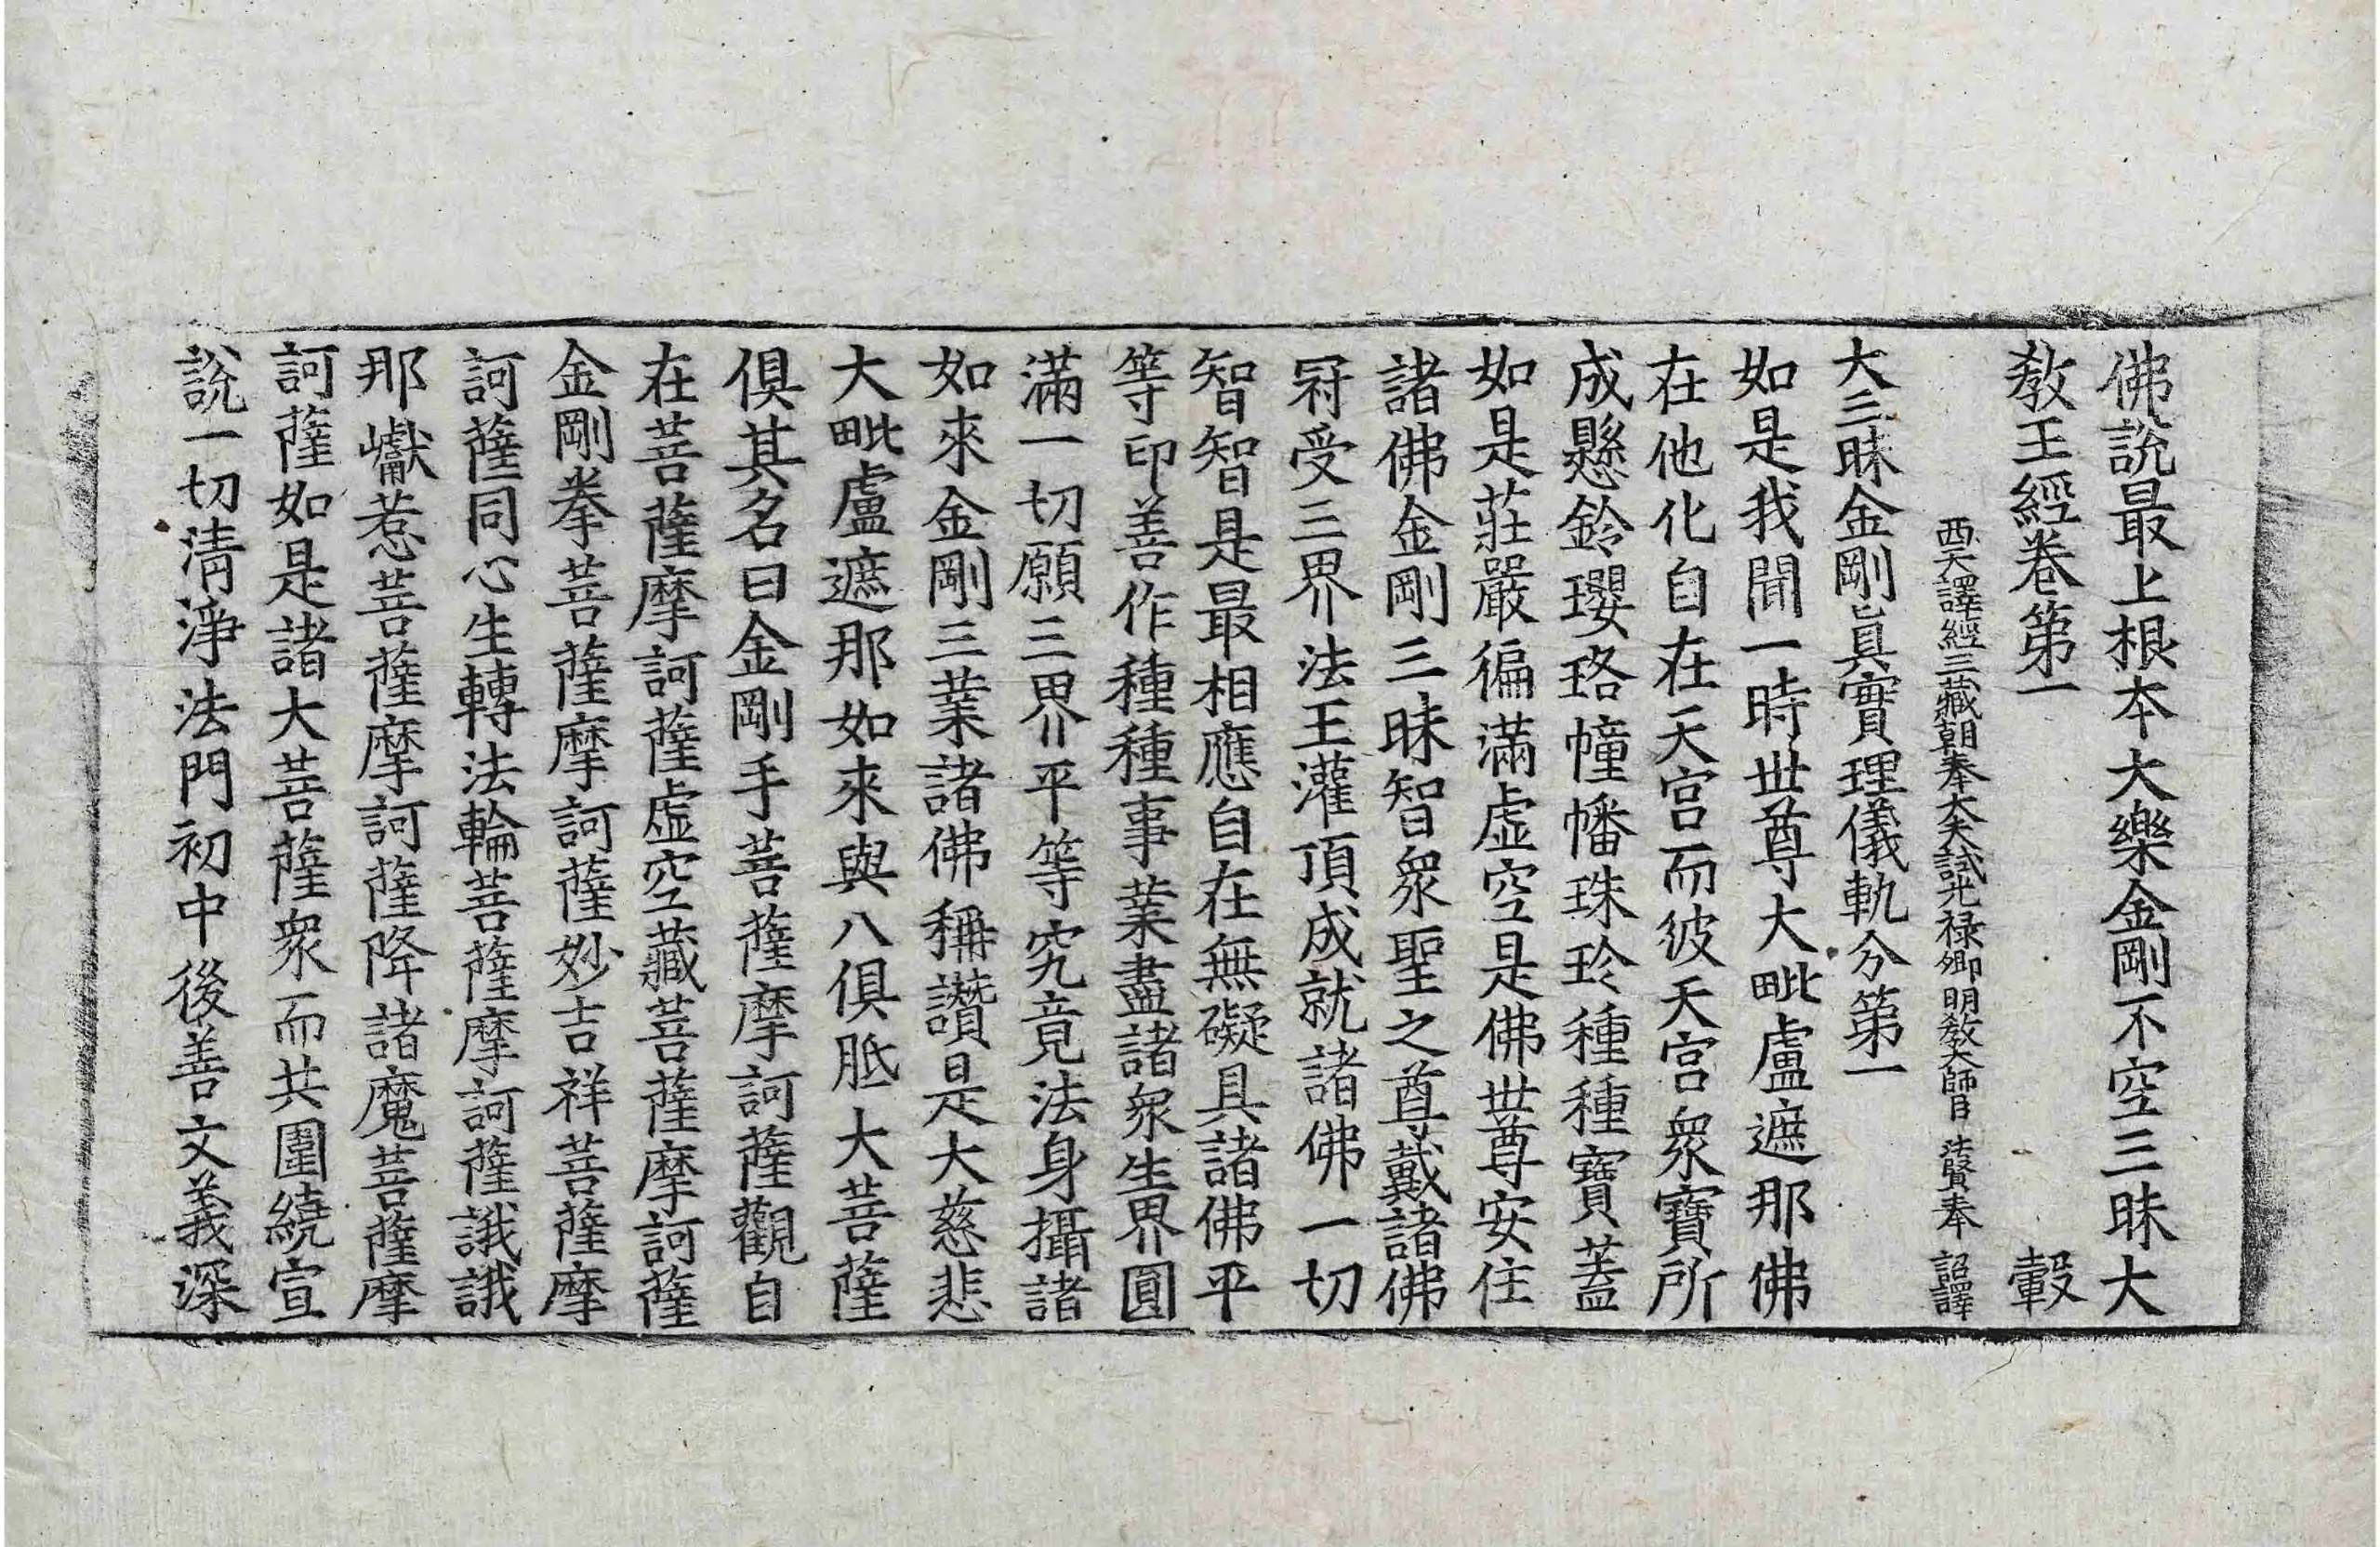 佛說最上根本大樂金剛不空三昧大
教王經卷第一 轂
西天譯經三藏朝奉大夫試光祿卿明教大師臣法賢奉 詔譯
大三昧金剛眞實理儀軌分第一
如是我聞一時世尊大毗盧遮那佛
在他化自在天宮而彼天宮衆寶所
成懸鈴瓔珞幢幡珠玲種種寶蓋
如是莊嚴徧滿虛空是佛世尊安住
諸佛金剛三昧智衆聖之尊戴諸佛
冠受三界法王灌頂成就諸佛一切
智智是最相應自在無礙具諸佛平
等印善作種種事業盡諸衆生界圓
滿一切願三界平等究竟法身攝諸
如來金剛三業諸佛稱讚是大慈悲
大毗盧遮那如來與八俱胝大菩薩
俱其名曰金剛手菩薩摩訶薩觀自
在菩薩摩訶薩虛空藏菩薩摩訶薩
金剛拳菩薩摩訶薩妙吉祥菩薩摩
訶薩同心生轉法輪菩薩摩訶薩誐誐
那巘惹菩薩摩訶薩降諸魔菩薩摩
訶薩如是諸大菩薩衆而共圍繞宣
說一切清淨法門初中後善文義深